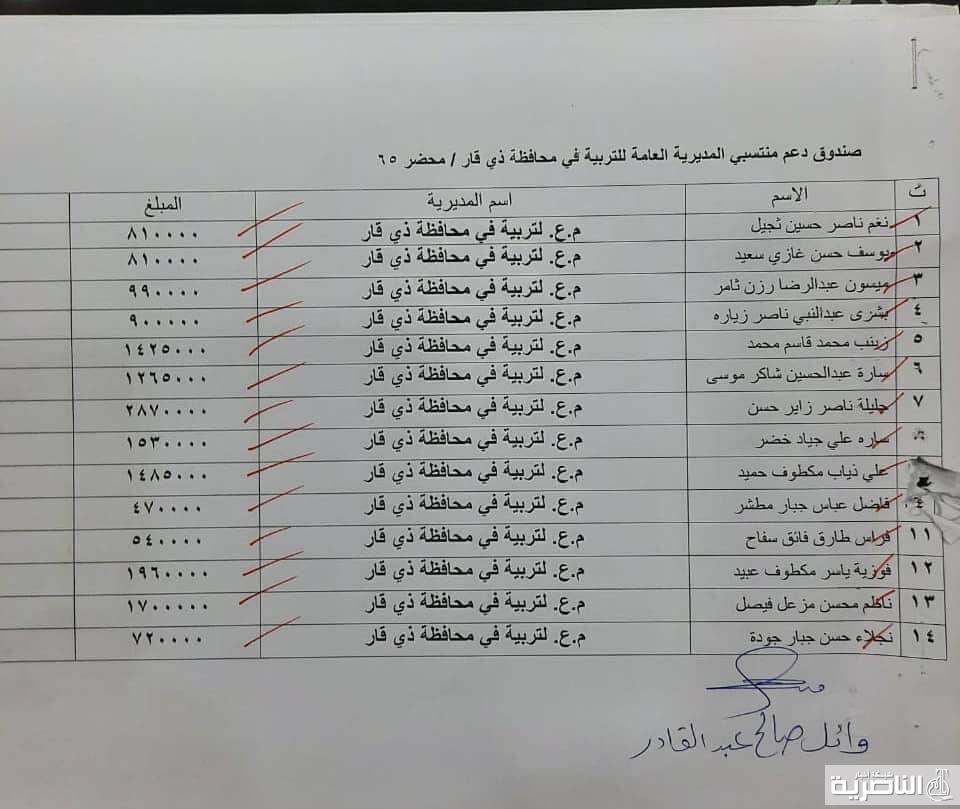 صندوق دعم منتسبي المديرية العامة للتربية في محافظة ذي قار / محضر ٦٥
ت الاسم اسم المديرية المبلغ
١ نغم ناصر حسين ثجيل م.ع. لتربية في محافظة ذي قار ٨١٠٠٠٠
٢ يوسف حسن غازي سعيد م.ع. لتربية في محافظة ذي قار ٨١٠٠٠٠
٣ ميسون عبدالرضا رزن ثامر م.ع. لتربية في محافظة ذي قار ٩٩٠٠٠٠
٤ بشرى عبدالنبي ناصر زياره م.ع. لتربية في محافظة ذي قار ٩٠٠٠٠٠
٥ زينب محمد قاسم محمد م.ع. لتربية في محافظة ذي قار ١٤٢٥٠٠٠
٦ سارة عبدالحسين شاكر موسى م.ع. لتربية في محافظة ذي قار ١٢٦٥٠٠٠
٧ جليلة ناصر زاير حسن م.ع. لتربية في محافظة ذي قار ٢٨٧٠٠٠٠
ساره علي جياد خضر م.ع. لتربية في محافظة ذي قار ١٥٣٠٠٠٠
علي ذياب مكطوف حميد م.ع. لتربية في محافظة ذي قار ١٤٨٥٠٠٠
فاضل عباس جبار مطشر م.ع. لتربية في محافظة ذي قار ٤٧٠٠٠٠
١١ فراس طارق فائق سفاح م.ع. لتربية في محافظة ذي قار ٥٤٠٠٠٠
١٢ فوزية ياسر مكطوف عبيد م.ع. لتربية في محافظة ذي قار ١٩٦٠٠٠٠
١٣ ناظم محسن مزعل فيصل م.ع. لتربية في محافظة ذي قار ١٧٠٠٠٠٠
١٤ نجلاء حسن جبار جودة م.ع. لتربية في محافظة ذي قار ٧٢٠٠٠٠
وائل صالح عبد القادر
شبكة أخبار
الناصرية